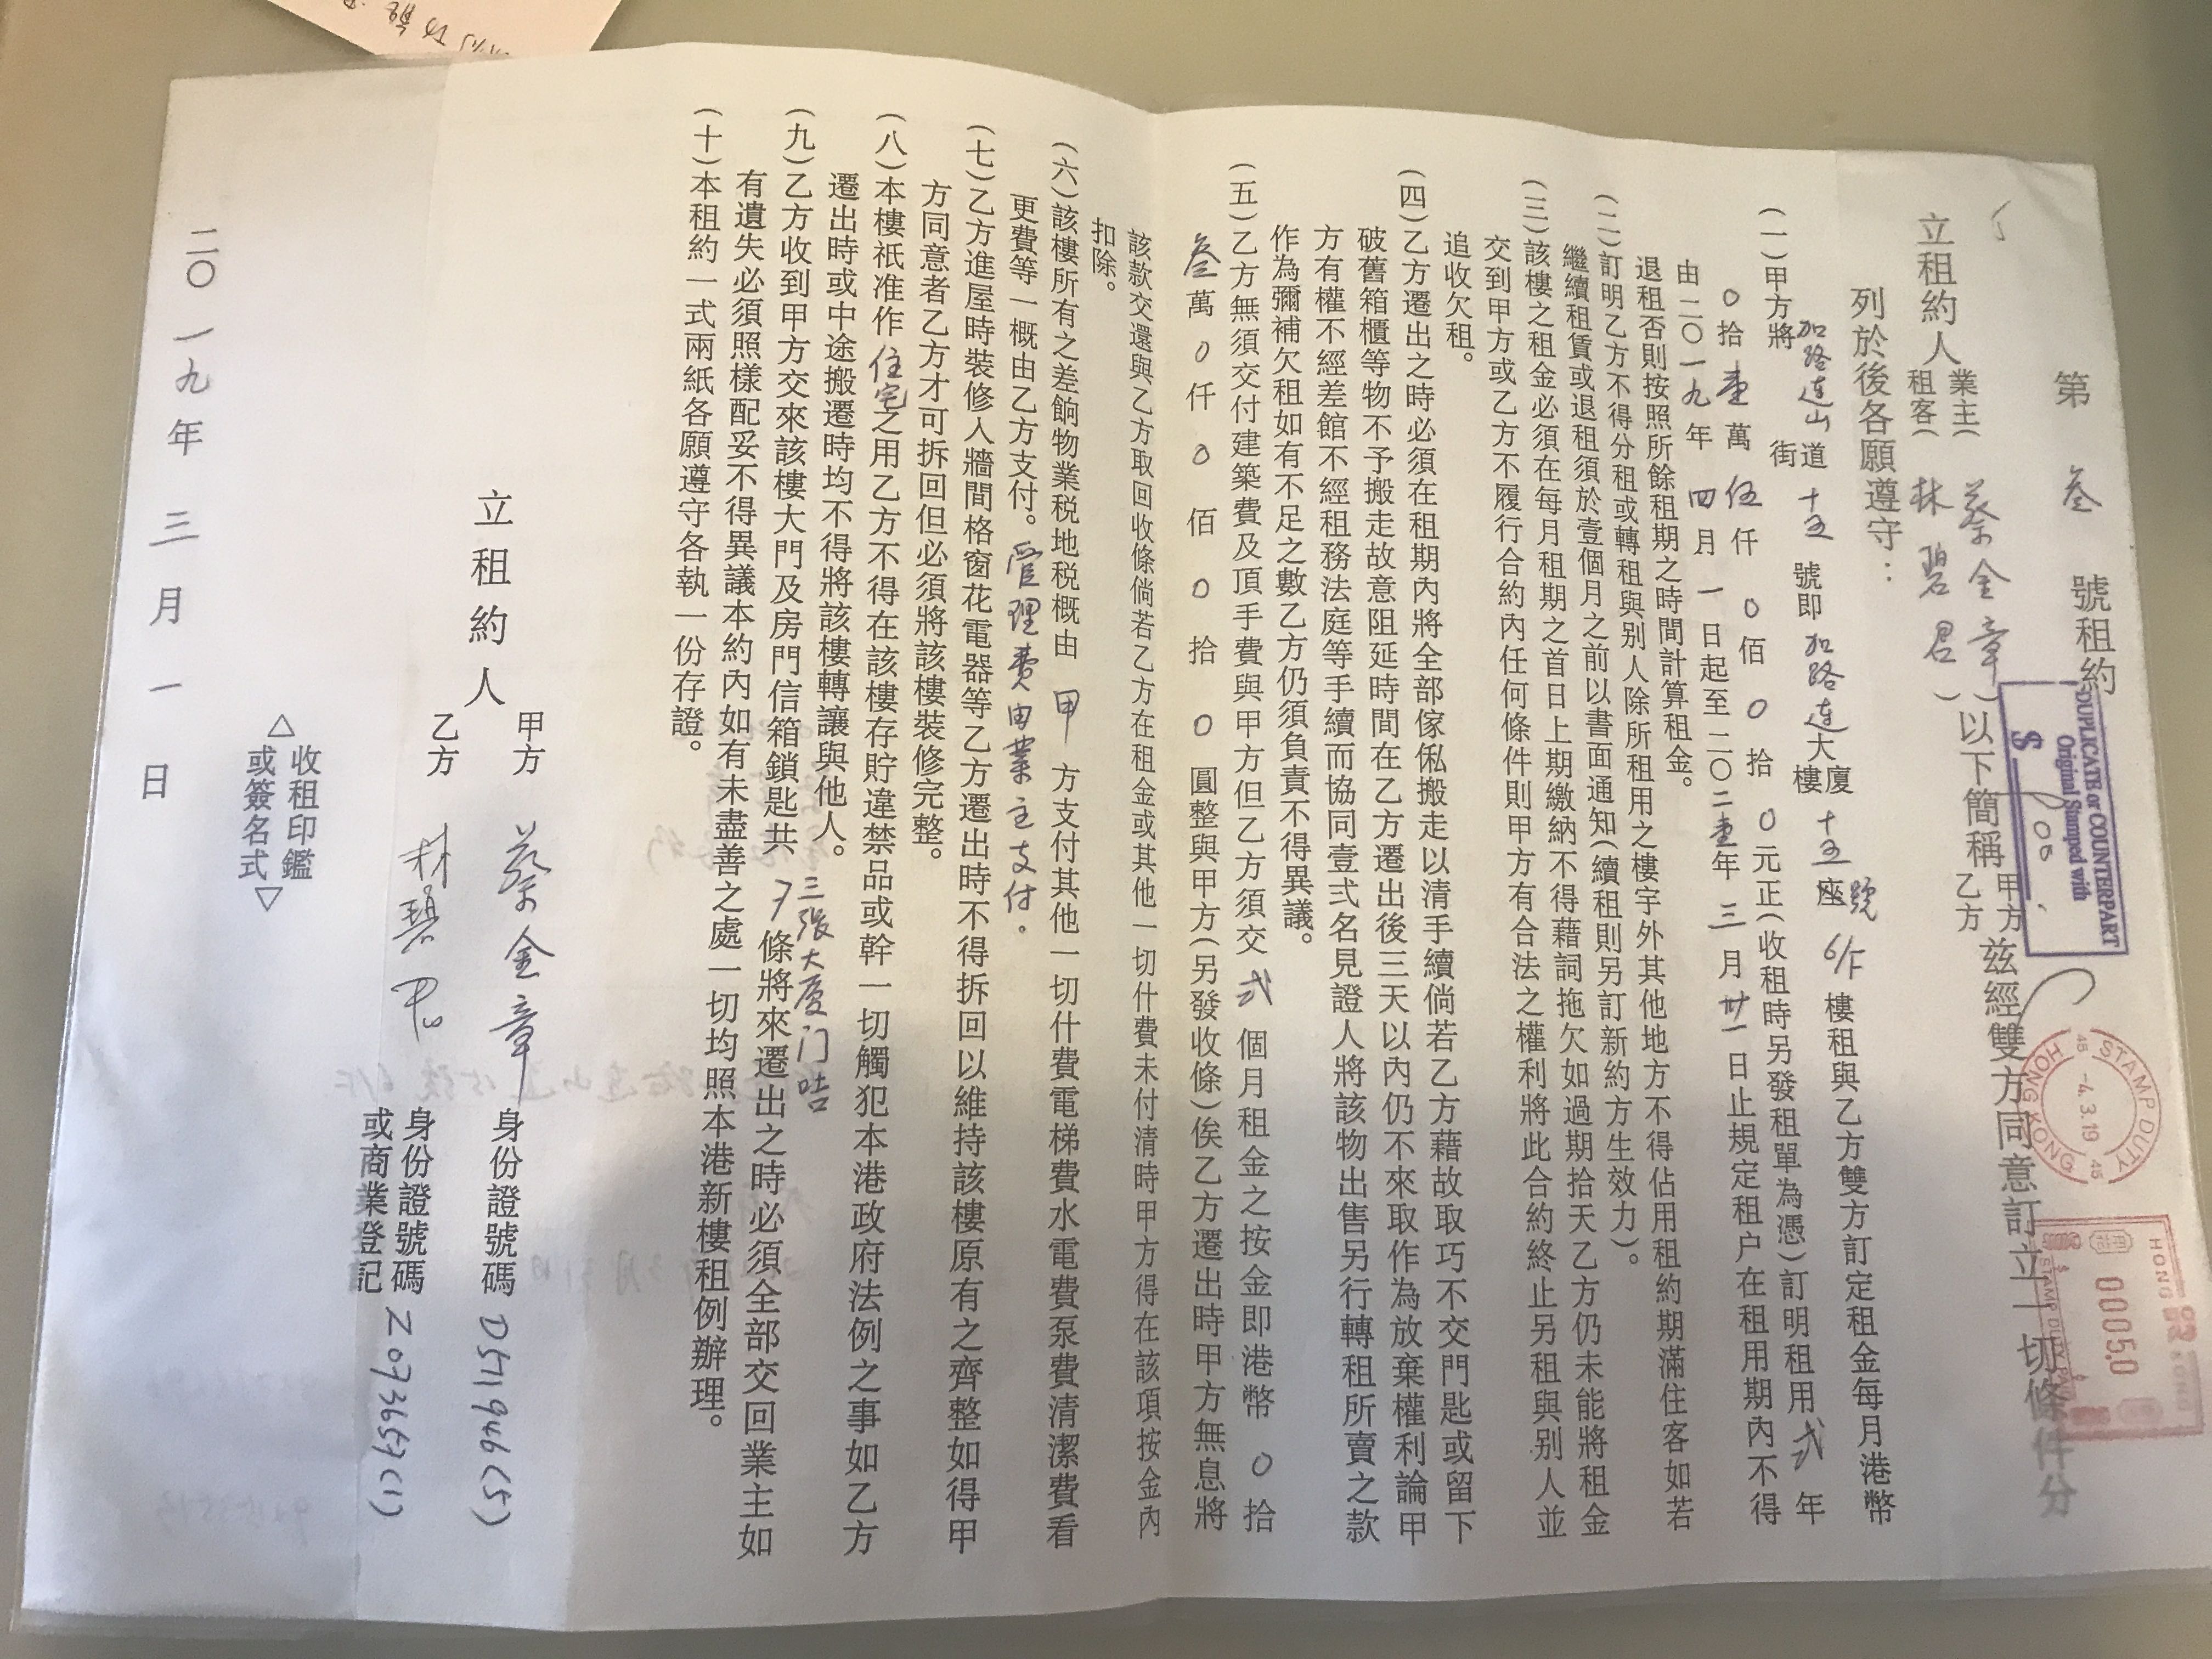 第 叁 號租約
立租約人 業主( 蔡金章
租客( 林碧君 ) 以下簡稱 甲方 乙方 茲經雙方同意訂立一切條件分
列於後各願遵守：
(一)甲方將 加路連山 道 街 十五 號即 加路連 大廈 樓 十五 號 座 6/F 樓租與乙方雙方訂定租金每月港幣
0 拾 壹 萬 伍 仟 0 佰 0 拾 0 元正(收租時另發租單為憑)訂明租用 弍 年
由二〇一九年 四 月 一 日起至二〇二壹年 三 月 卅一 日止規定租户在租用期內不得
退租否則按照所餘租期之時間計算租金。
(二)訂明乙方不得分租或轉租與別人除所租用之樓宇外其他地方不得佔用租約期滿住客如若
繼續租賃或退租須於壹個月之前以書面通知(續租則另訂新約方生效力)。
(三)該樓之租金必須在每月租期之首日上期繳納不得藉詞拖欠如過期拾天乙方仍未能將租金
交到甲方或乙方不履行合約內任何條件則甲方有合法之權利將此合約終止另租與別人並
追收欠租。
(四)乙方遷出之時必須在租期內將全部傢俬搬走以清手續倘若乙方藉故取巧不交門匙或留下
破舊箱櫃等物不予搬走故意阻延時間在乙方遷出後三天以內仍不來取作為放棄權利論甲
方有權不經差館不經租務法庭等手續而協同壹弍名見證人將該物出售另行轉租所賣之款
作為彌補欠租如有不足之數乙方仍須負責不得異議。
(五)乙方無須交付建築費及頂手費與甲方但乙方須交 弍 個月租金之按金即港幣 0 拾
叁 萬 0 仟 0 佰 0 拾 0 圓整與甲方(另發收條)俟乙方遷出時甲方無息將
該款交還與乙方取回收條倘若乙方在租金或其他一切什費未付清時甲方得在該項按金內
扣除。
(六)該樓所有之差餉物業税地税概由 甲 方支付其他一切什費電梯費水電費泵費清潔費看
更費等一概由乙方支付。管理費由業主支付.
(七)乙方進屋時裝修入牆間格窗花電器等乙方遷出時不得拆回以維持該樓原有之齊整如得甲
方同意者乙方才可拆回但必須將該樓裝修完整。
(八)本樓祇准作 住宅 之用乙方不得在該樓存貯違禁品或幹一切觸犯本港政府法例之事如乙方
遷出時或中途搬遷時均不得將該樓轉讓與他人。
三張大廈门咭
(九)乙方收到甲方交來該樓大門及房門信箱鎖匙共 7 條將來遷出之時必須全部交回業主如
有遺失必須照樣配妥不得異議本約內如有未盡善之處一切均照本港新樓租例辦理。
(十)本租約一式兩紙各願遵守各執一份存證。
立租約人
甲方 蔡金章 身份證號碼 D571946(5)
乙方 林碧君 身份證號碼 或商業登記 Z073657(1)
△ 收租印鑑 或簽名式 ▽
二〇一九年 三 月 一 日
DUPLICATE or COUNTERPART
Original Stamped with
$ 100.
STAMP DUTY
45 -4.3.19 45
HONG KONG
HONG KONG
00050
STAMP DUTY PAID